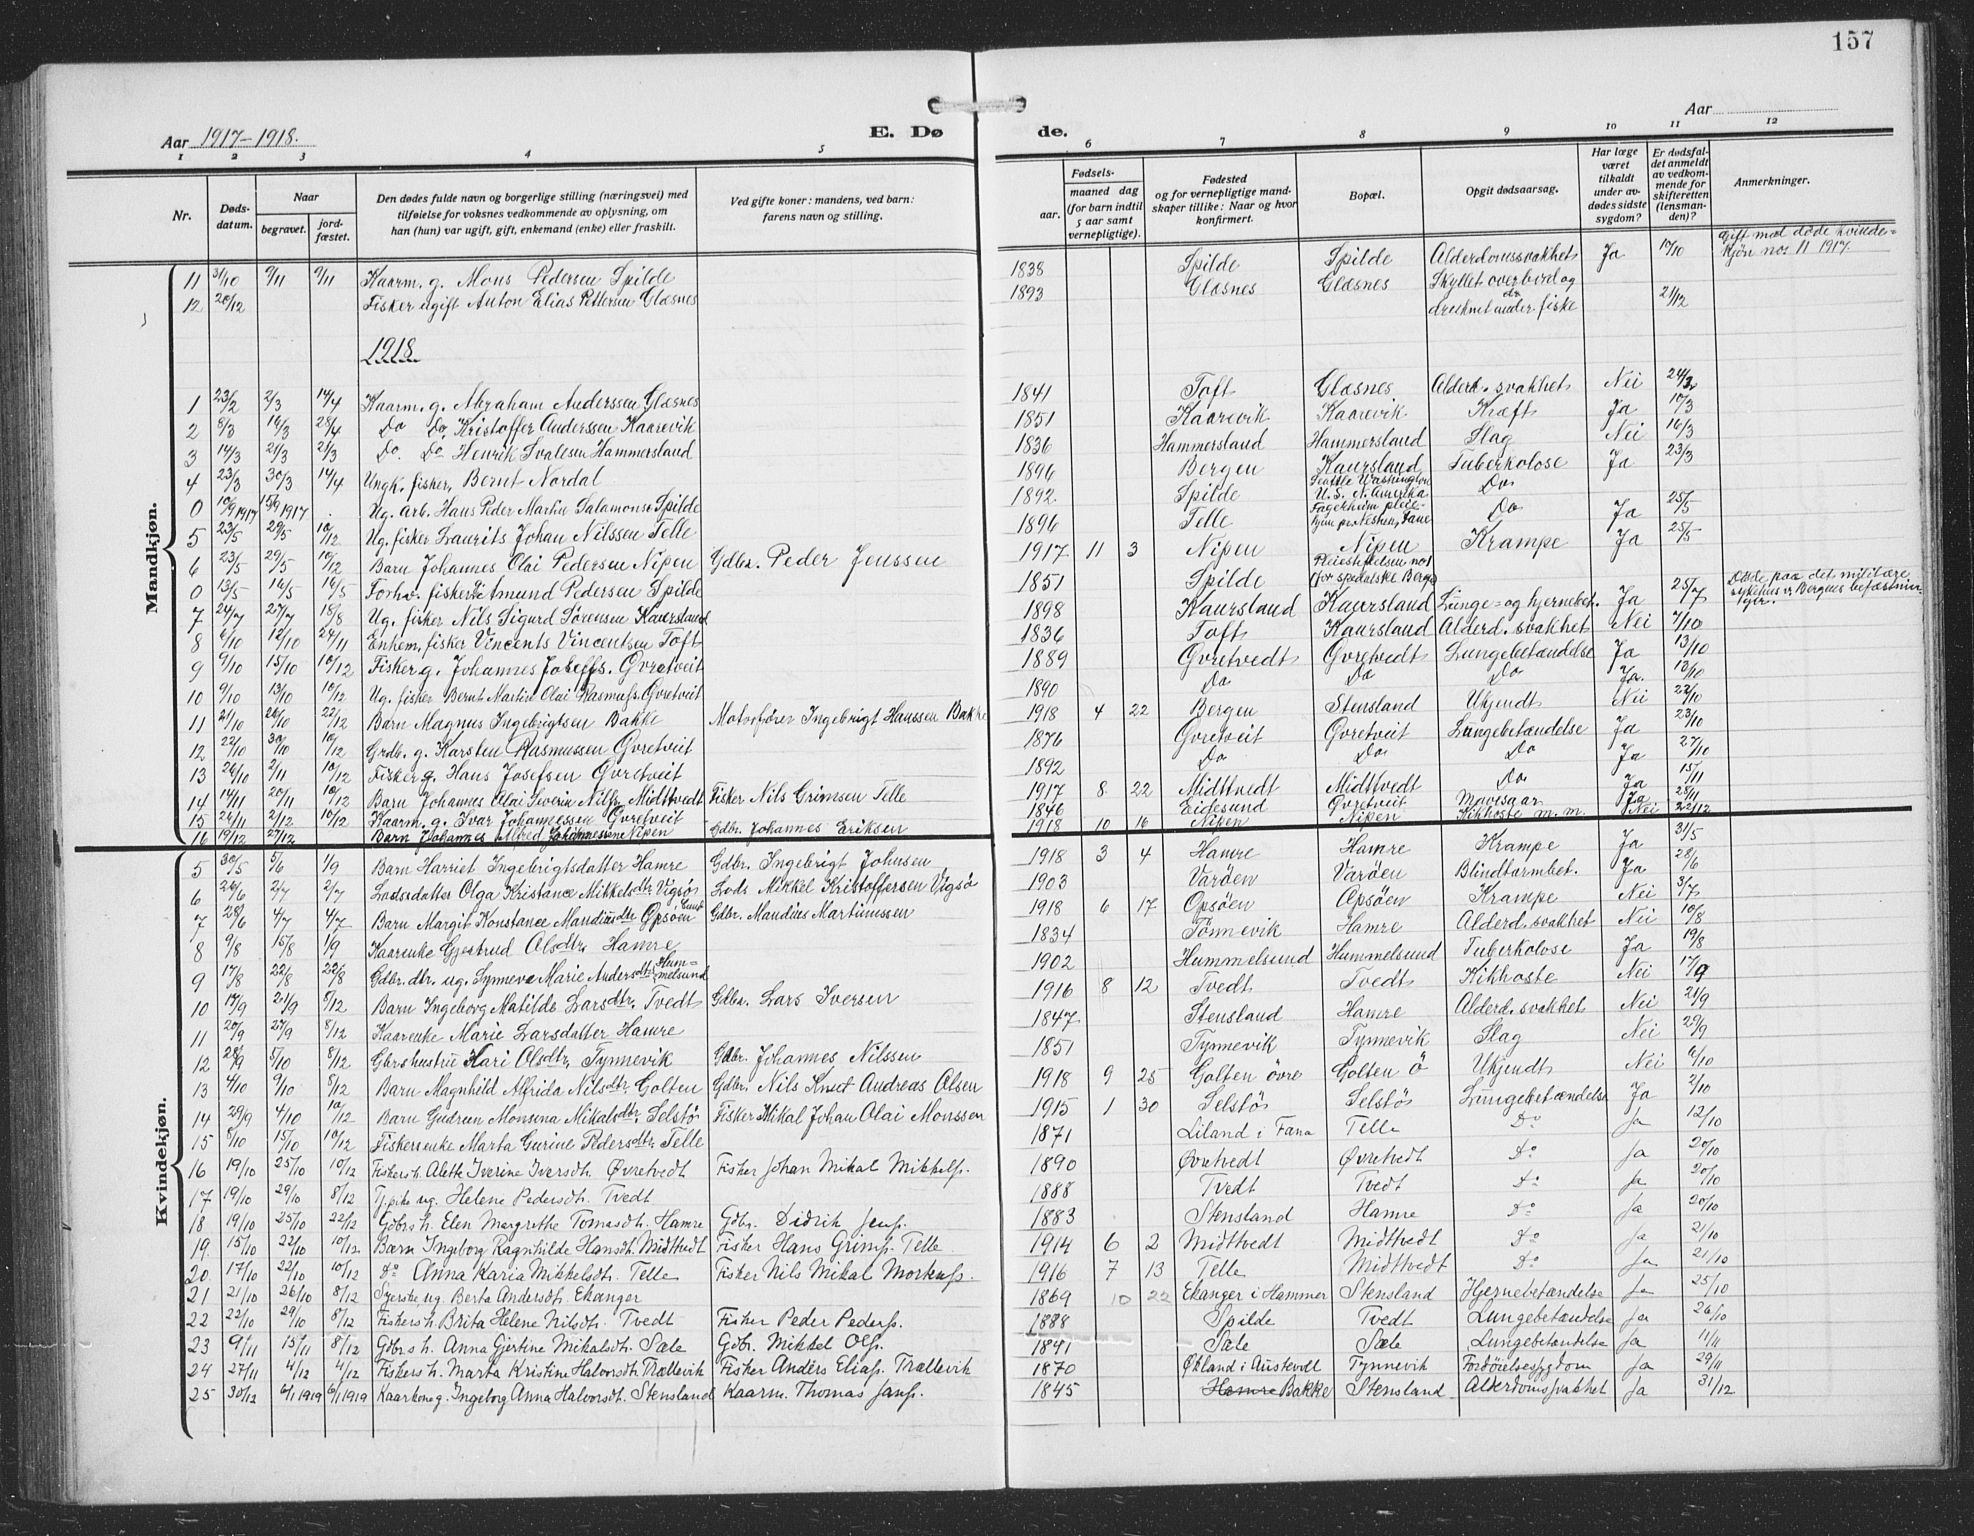 157
Aar 1917-1918.
E. Dø
de.
Aar
1 2 3 4 5
6 7 8 9 10 11 12
Nr.
Døds-datum.
Naar
begravet.
jord-fæstet.
Den dødes fulde navn og borgerlige stilling (næringsvei) med
tilføielse for voksnes vedkommende av oplysning, om
han (hun) var ugift, gift, enkemand (enke) eller fraskilt.
Ved gifte koner: mandens, ved barn:
farens navn og stilling.
Fødsels-
aar.
maaned dag
(for barn indtil
5 aar samt
vernepligtige).
Fødested
og for vernepligtige mand-
skaper tillike: Naar og hvor
konfirmert.
Bopæl.
Opgit dødsaarsag.
Har læge
været
tilkaldt
under av-
dødes sidste
sygdom?
Er dødsfal-
det anmeldt
av vedkom-
mende for
skifteretten
(lensman-
den)?
Anmerkninger.
Mandkjøn.
11 31/10 9/11 9/11 Kaarm. g. Mons Pedersen Spilde 1838 Spilde Spilde Alderdomssvakhet Ja 17/10 Gift med døde kvinde-
kjøn nos 11 1917.
12 20/12 Fisker ugift Anton Elias Pettersen Glæsnes 1893 Glæsnes Glæsnes Skyllet overbord og
druknet under fiske 21/12
1918
1 23/2 2/3 14/4 Kaarm. g. Abraham Anderssen Glæsnes 1841 Toft Glæsnes Alderd. svakhet Nei 24/2
2 8/3 16/3 28/4 Do Do. Kristoffer Anderssen Kaarevik 1851 Kaarevik Kaarevik Kræft Ja 10/3
3 14/3 21/3 21/3 Do. Do Henrik Ivalesen Hammersland 1836 Hammersland Hammersland Slag Nei 16/3
4 23/3 30/3 14/4 Ungk. fisker, Bernt Nordal 1896 Bergen Kaursland Tuberkolose Ja 23/3
0 10/9 1917 15/9 1917 Ug. arb. Hans Peder Martin Salamons. Spilde 1892. Spilde Seattle Washington
U.S. N. Amerika Do
5 23/5 29/5 10/12 Ug. fisker Laurits Johan Nilssen Telle 1896 Telle Fagerheim pleie-
hjem pr. Nesten, Fane Do Ja 25/5
6 23/5 29/5 10/12 Barn Johannes Olai Pedersen Nipen Gdbr. Peder Jenssen 1917 11 3 Nipen Nipen Krampe Ja 25/5
0 13/5 16/5 16/5 Forhv. fisker Amund Pedersen Spilde 1851 Spilde Pleiestiftelsen no 1
(for spedalske Bergen)
7 24/7 27/7 18/8 Ug. fisker Nils Sigurd Sørensen Kaursland 1898 Kaursland Kaursland Lunge- og hjernebet. Ja 25/7 Døde paa det militære
sykehus v. Bergens befæstnin-
ger.
8 6/10 12/10 24/11 Enkem. fisker Vincents Vincentsen Toft 1836 Toft Kaursland Alderd. svakhet Nei 7/10
9 9/10 15/10 10/12 Fisker g. Johannes Joseffs. Øvretveit 1889 Øvretvedt Øvretvedt Lungebetændelse Ja 13/10
10 9/10 13/10 10/12 Ug. fisker Bernt Martin Olai Rasmuss. Øvretveit 1890 Do Do Do Ja. 13/10
11 21/10 26/10 22/12 Barn Magnus Ingebrigtsen Bakke Motorfører Ingebrigt Hanssen Bakke 1918 4 22 Bergen Stensland Ukjendt Nei 22/10
12 22/10 30/10 10/12 Grdb. g. Karsten Rasmussen Øvretveit 1876 Øvretveit Øvretveit Lungebetændelse Ja 23/10
13 26/10 2/11 10/12 Fisker g. Hans Josefsen Øvretveit 1892 Do Do Do Ja 27/10
14 14/11 20/11 10/12 Barn Johannes Olai Severin Nilsr. Midttvedt Fisker Nils Grimsen Telle 1917 8 22 Midttvedt Midttvedt Do Ja 15/11
15 26/11 2/12 10/12 Kaarm. g. Ivar Johannessen Øvretveit 1846 Eidesund Øvretveit Mavesaar Ja 28/11
16 19/12 27/12 Barn Johannes Alfred Johannessen Nipen Gdbr. Johannes Eriksen 1918 10 16 Nipen Nipen Kikhoste m.m. Nei 22/12
Kvindekjøn.
5 30/5 5/6 1/9 Barn Harriet Ingebrigtsdatter Hamre Gdbr. Ingebrigt Johnsen 1918 3 4 Hamre Hamre Krampe Ja 31/5
6 26/6 2/7 2/7 Lodsdatter Olga Kristance Mikkelsdtr. Vigsø Lods Mikkel Kristoffersen Vigsø 1903 Varøen Varøen Blindtarmbet. Ja 28/6
7 28/6 4/7 4/7 Barn Margit Konstance Mandiusdtr Opsøen Gdbr. Mandius Martinussen 1918 6 17 Opsøen Opsøen Krampe Nei 3/7
8 9/8 15/8 1/9 Kaarenke Gjertrud Olsdtr. Hamre 1834 Tønnevik Hamre Alderd. svakhet Nei 10/8
9 17/8 22/8 22/8 Gdbr. dtr. ug. Synneve Marie Andersdtr. Hum-
melsund 1902 Hummelsund Hummelsund Tuberkolose Ja 19/8
10 17/9 21/9 8/12 Barn Ingeborg Matilde Larsdtr. Tvedt Gdbr. Lars Iversen 1916 8 12 Tvedt Tvedt Kikhoste Nei 17/9
11 20/9 27/9 8/12 Kaarenke Marie Larsdatter Hamre 1847 Stensland Hamre Alderd. svakhet Nei 21/9
12 28/9 5/10 8/12 Gbrs hustru Kari Olsdtr. Tynnevik Gdbr. Johannes Nilssen 1851 Tynnevik Tynnevik Slag Nei 29/9
13 4/10 9/10 8/12 Barn Magnhild Alfrida Nilsdtr. Golten Gdbr. Nils Knut Andreas Olsen 1918 9 25 Golten øvre Golten Ø Ukjendt Nei 6/10
14 29/9 4/10 10/12 Barn Gudrun Monsina Mikalsdtr. Selstø Fisker Mikal Johan Olai Monssen 1915 1 30 Selstø Selstø Lungebetændelse Ja 2/10
15 8/10 15/10 10/12 Fiskerenke Marta Gurine Pedersdtr. Telle 1871 Liland i Fana Telle Do Ja 12/10
16 19/10 25/10 10/12 Fiskersh. Alette Iverine Iversdt. Øvretvedt Fisker Johan Mikal Mikkels. 1890 Øvretvedt Øvretvedt Do Ja 20/10
17 19/10 29/10 8/12 Pike ug. Helene Pedersdt. Tvedt 1888 Tvedt Tvedt Do Ja 20/10
18 19/10 25/10 22/12 Gdbrs h. Elen Margrethe Tomasdt. Hamre Gdbr. Didrik Jens. 1883 Stensland Hamre Do Ja 20/10
19 15/10 22/10 10/12 Barn Ingeborg Ragnhilde Hansdt. Midttvedt Fisker Hans Grims. Telle 1914 6 2 Midttvedt Midttvedt Do Ja 21/10
20 17/10 22/10 10/12 Do Anna Karia Mikkelsdt. Telle Fisker Nils Mikal Markuss. 1916 7 13 Telle Midttvedt Do Ja 21/10
21 21/10 26/10 8/12 Syerske ug. Berta Andersdt. Ekanger 1869 10 22 Ekanger i Hammer Stensland Hjernebetændelse Ja 25/10
22 22/10 29/10 8/12 Fiskersh. Brita Helene Nilsdt. Tvedt Fisker Peder Peders. 1888 Spilde Tvedt Lungebetændelse Ja 26/10
23 9/11 15/11 8/12 Gdbrs h. Anna Gjertine Mikalsdt. Sæle Gdbr. Mikkel Ols. 1891 Sæle Sæle Lungebetændelse Ja 11/11
24 27/11 4/12 4/12 Fiskers h. Marta Kristine Halvorsdt. Trællevik Fisker Anders Elias. Trællevik 1870 Økland i Austevoll Tynnevik Fordøielsessygdom Ja 29/11
25 30/12 6/1 1919 6/1 1919 Kaarkone g. Ingeborg Anna Halvorsdt. Stensland Kaarm. Thomas Jans. 1845 Hamre Bakke Stensland Alderdomssvakhet Ja 31/12